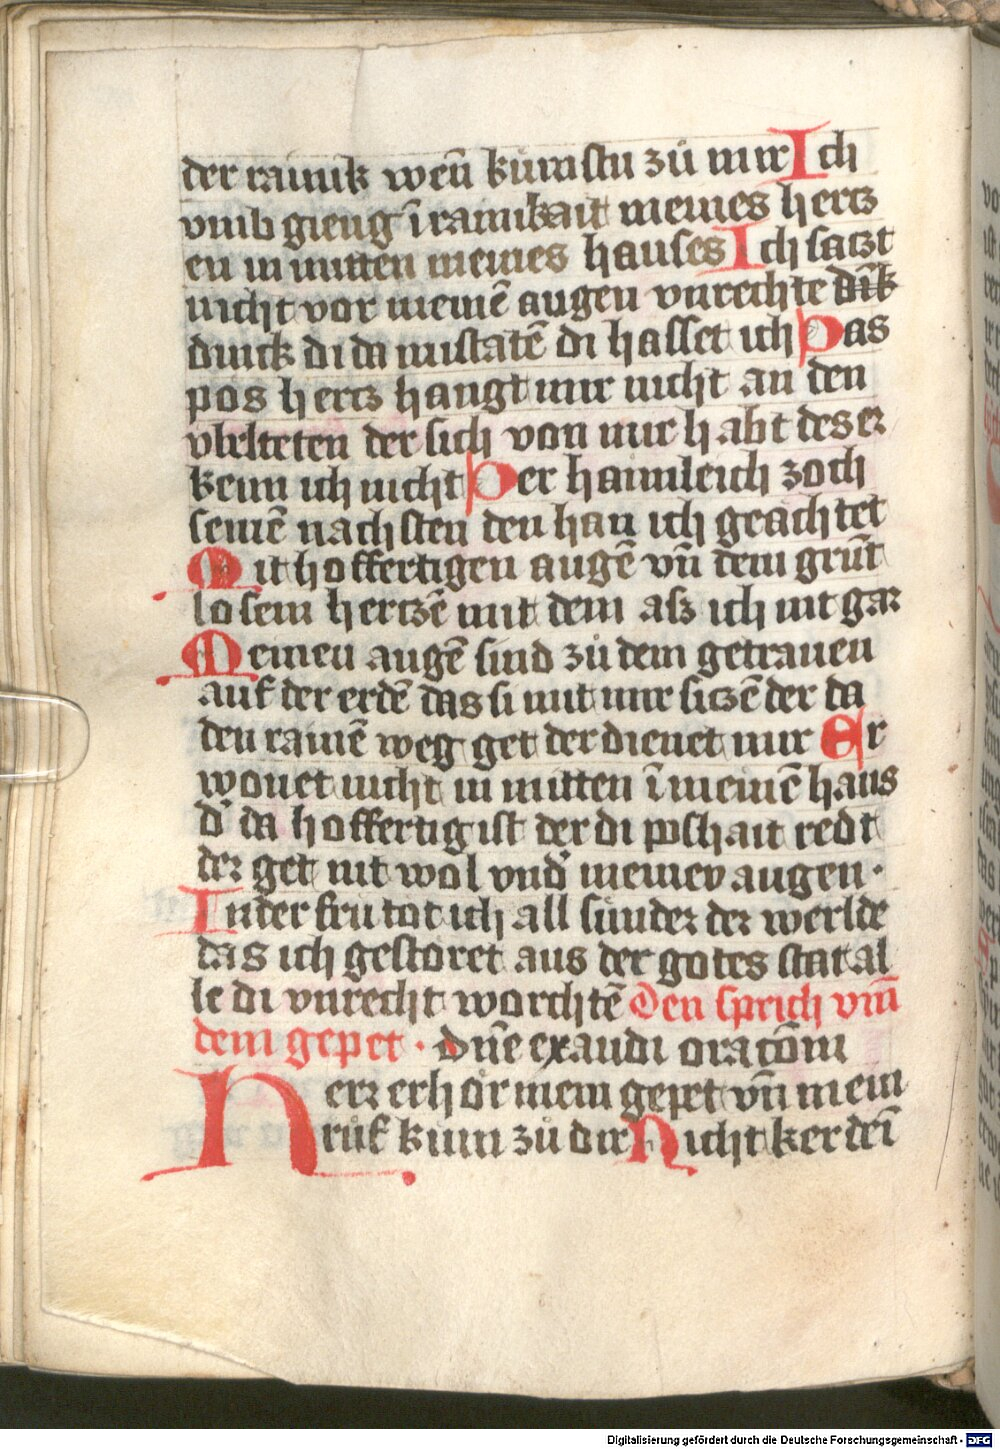 der rainik wen̄ kum̄stu zů mir Ich
vmb gieng ī rainikait meines hertz
en in mitten meines hauses Ich satzt
nicht vor meinē augen vnrechte dink
dinck di da mistatē di hasset ich Das
pos hertz hangt mir nicht an den
vblteten der sich von mir habt des er
kenn ich nicht Der haimleich zoch
seinē nachsten den han ich geachtet
Mit hoffertigen augē vn̄ dem grūt
losem hertzē mit dem asz ich nit gar
Meineu augē sind zů dem getrauen
auf der erdē das si mit mir sitzē der da
den rainē weg get der dienet mir Er
wonet nicht in mitten ī meinē haus
d' da hoffertig ist der di poshait redt
der get nit wol vnd' meinev augen ·
In der fru tot ich all sunder der werlde
das ich gestoret aus der gotes stat al
le di vnrecht worchtē Den sprich vm̄
dem gepet · Dn̄e exaudi oracōm
Herr erhör mein gepet vn̄ mein
růf kum zů dir Nicht ker dei
Digitalisierung gefördert durch die Deutsche Forschungsgemeinschaft - DFG